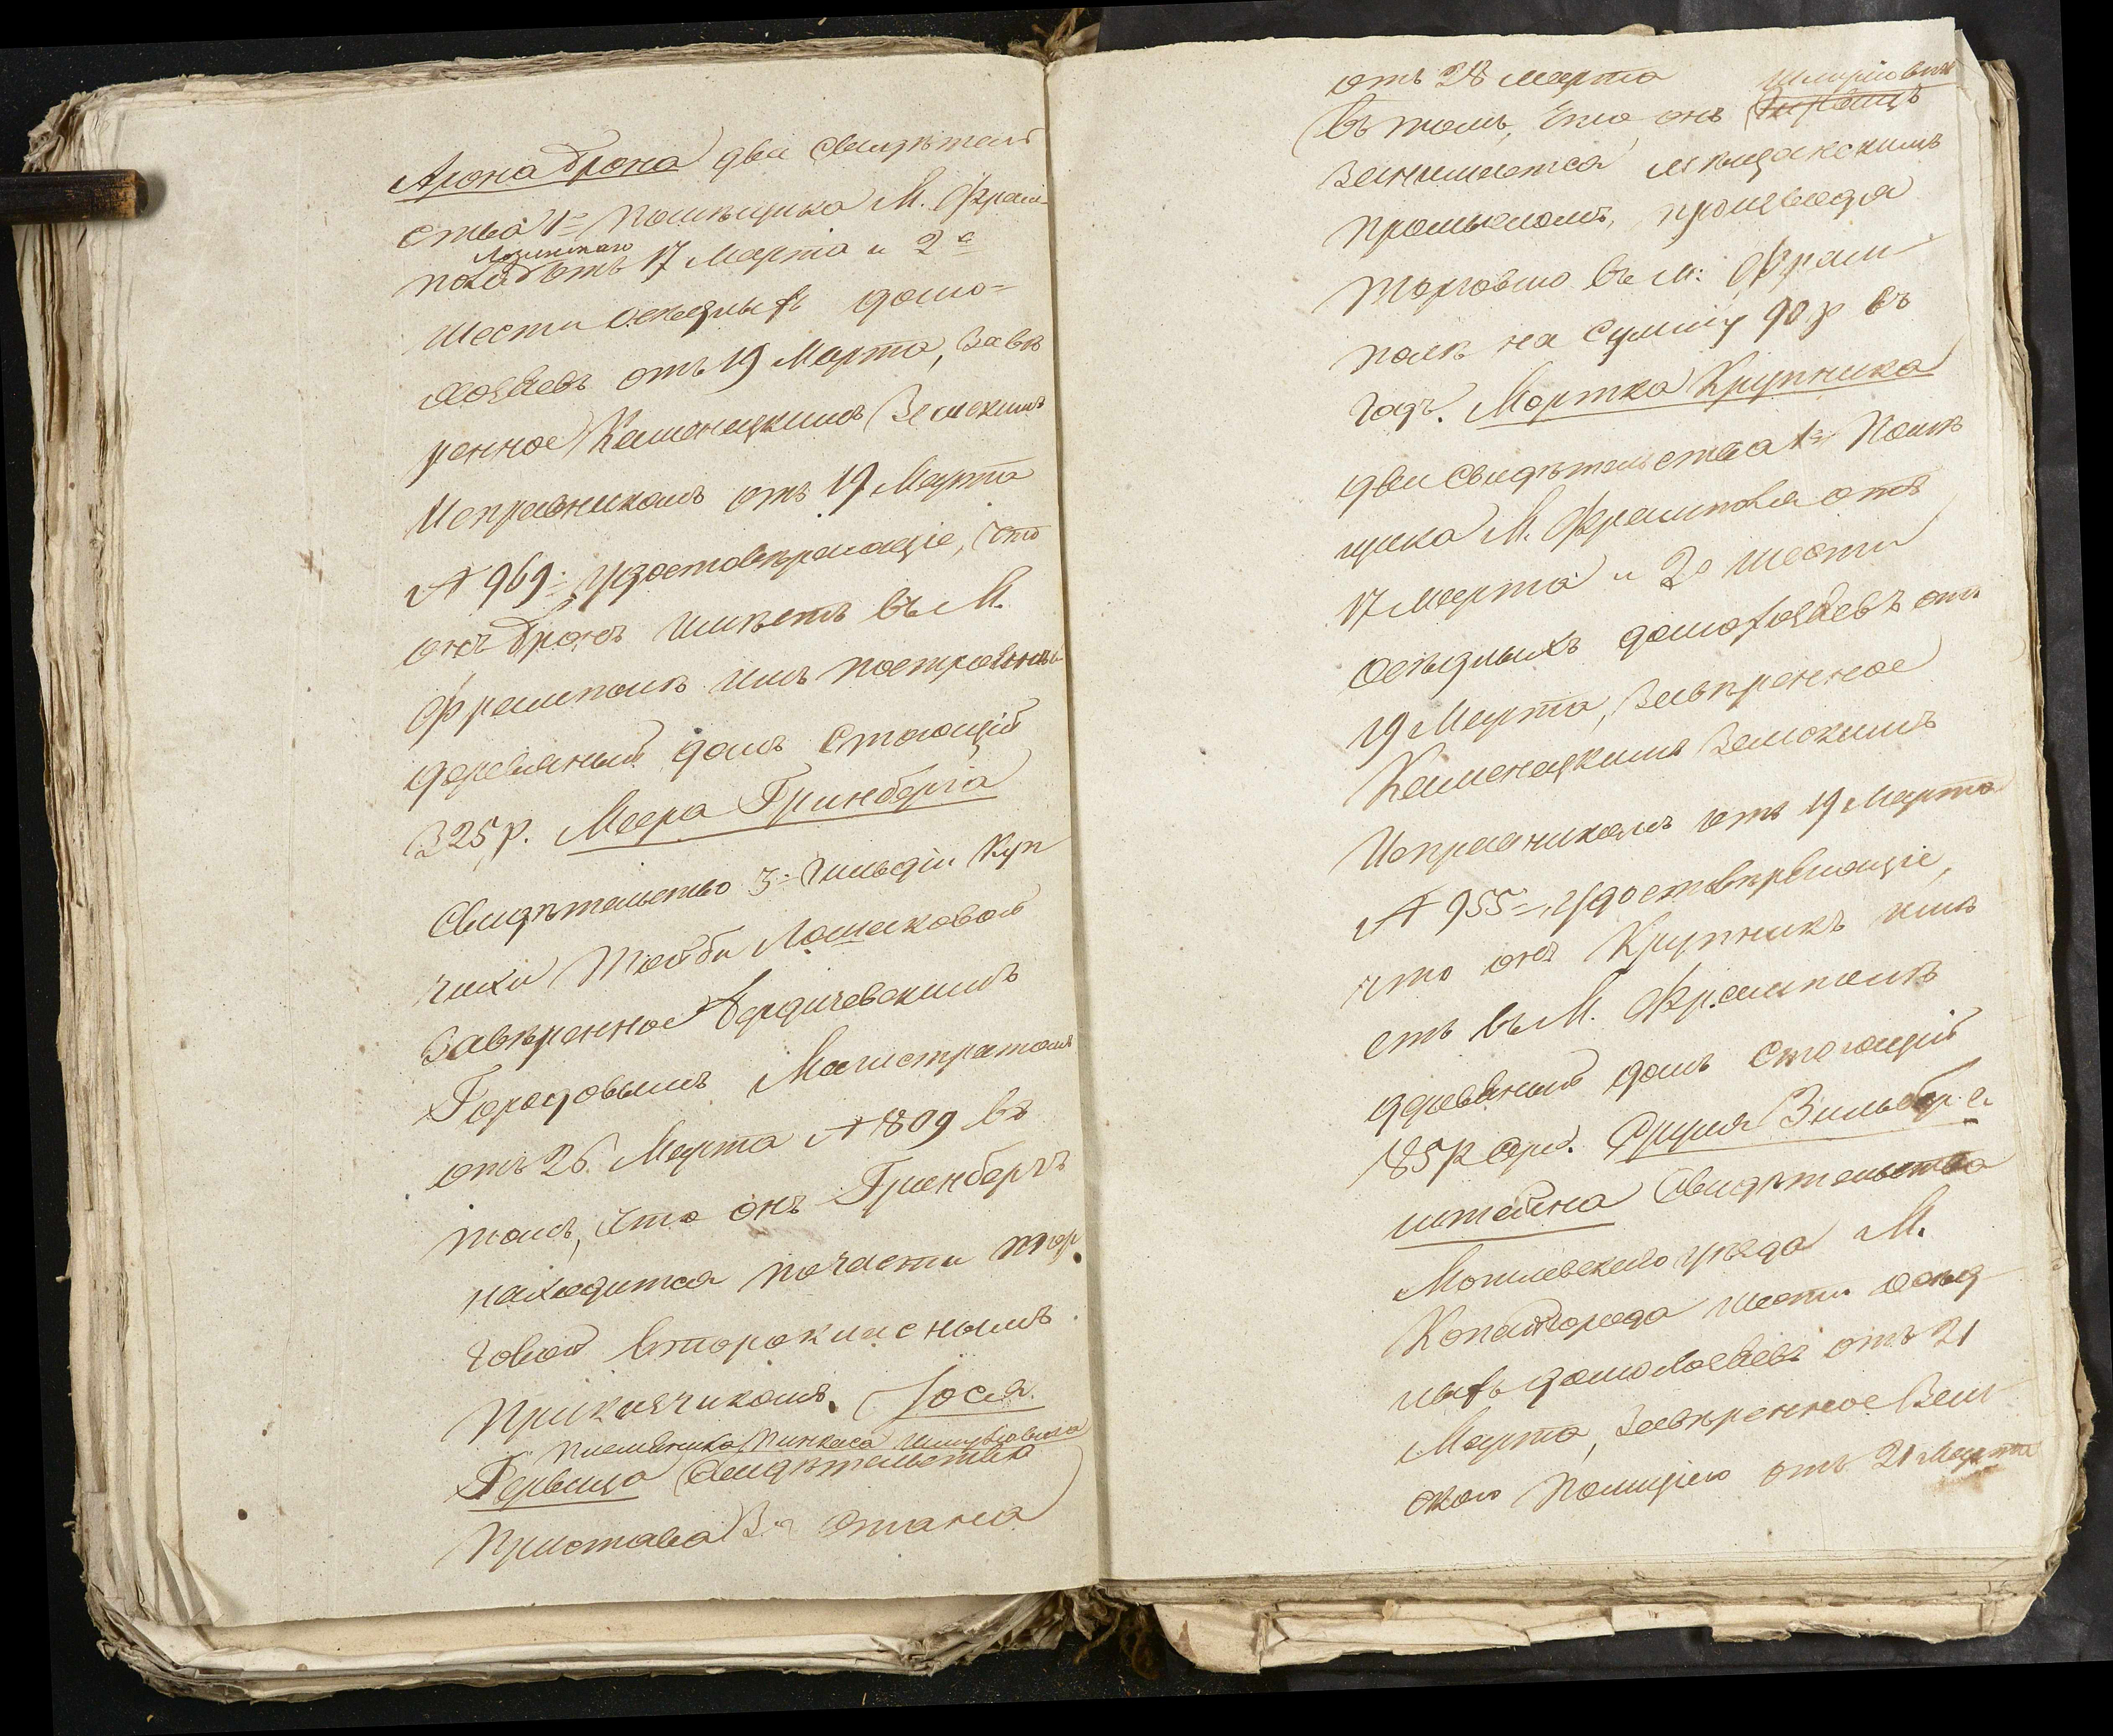 Арона Брона два свидѣтель
ства 1е помѣщика М. Фрам
Лозинскаго
поля отъ 17 Марта и 2е
шести осѣдлыхъ домо=
хозяевъ отъ 19 Марта, завѣ
ренное Каменецкимъ Земскимъ
Исправникомъ отъ 19 Марта
№ 969= удостовѣряющіе, что
онъ Бронъ имѣетъ въ М.
Фрамполѣ имъ построенный
деревянный домъ стоющій
325 р. Меера Гринберга
Свидѣтельство 3= гильдіи куп
чихи Тойбы Лошаковой
завѣренное Бердичевскимъ
Городовымъ Магистратомъ
отъ 26 Марта № 1809 въ
томъ, что онъ Гринбергъ
находится по части тор
говой второкласнымъ
прикащикомъ. Іося
племянника Пинкаса Шмулёвича
Гервица свидѣтельство
Пристава 3го Стана
отъ 28 Марта
Шмулёвич
въ томъ, что онъ Гервицъ
занимается мѣщанскимъ
промысломъ, производя
торговлю въ М: Фрам
полѣ на сумму 90 р въ
годъ. Мортка Крупника
два свидѣтельства 1е помѣ
щика М. Фрамполя отъ
17 Марта и 2е шести
осѣдлыхъ домохозяевъ отъ
19 Марта, завѣренное
Каменецкимъ Земскимъ
Исправникомъ отъ 19 Марта
№ 955= удостовѣряющіе,
что онъ Крупникъ имѣ
етъ въ М. Фрамполѣ
деревяный домъ стоющій
185 р сер. Сруля Зильбер
штейна Свидѣтельство
Могилевскаго уѣзда М.
Копайгорода шести осѣд
лыхъ домохозяевъ отъ 21
Марта, завѣренное Зем
скою Полиціею отъ 21 Марта